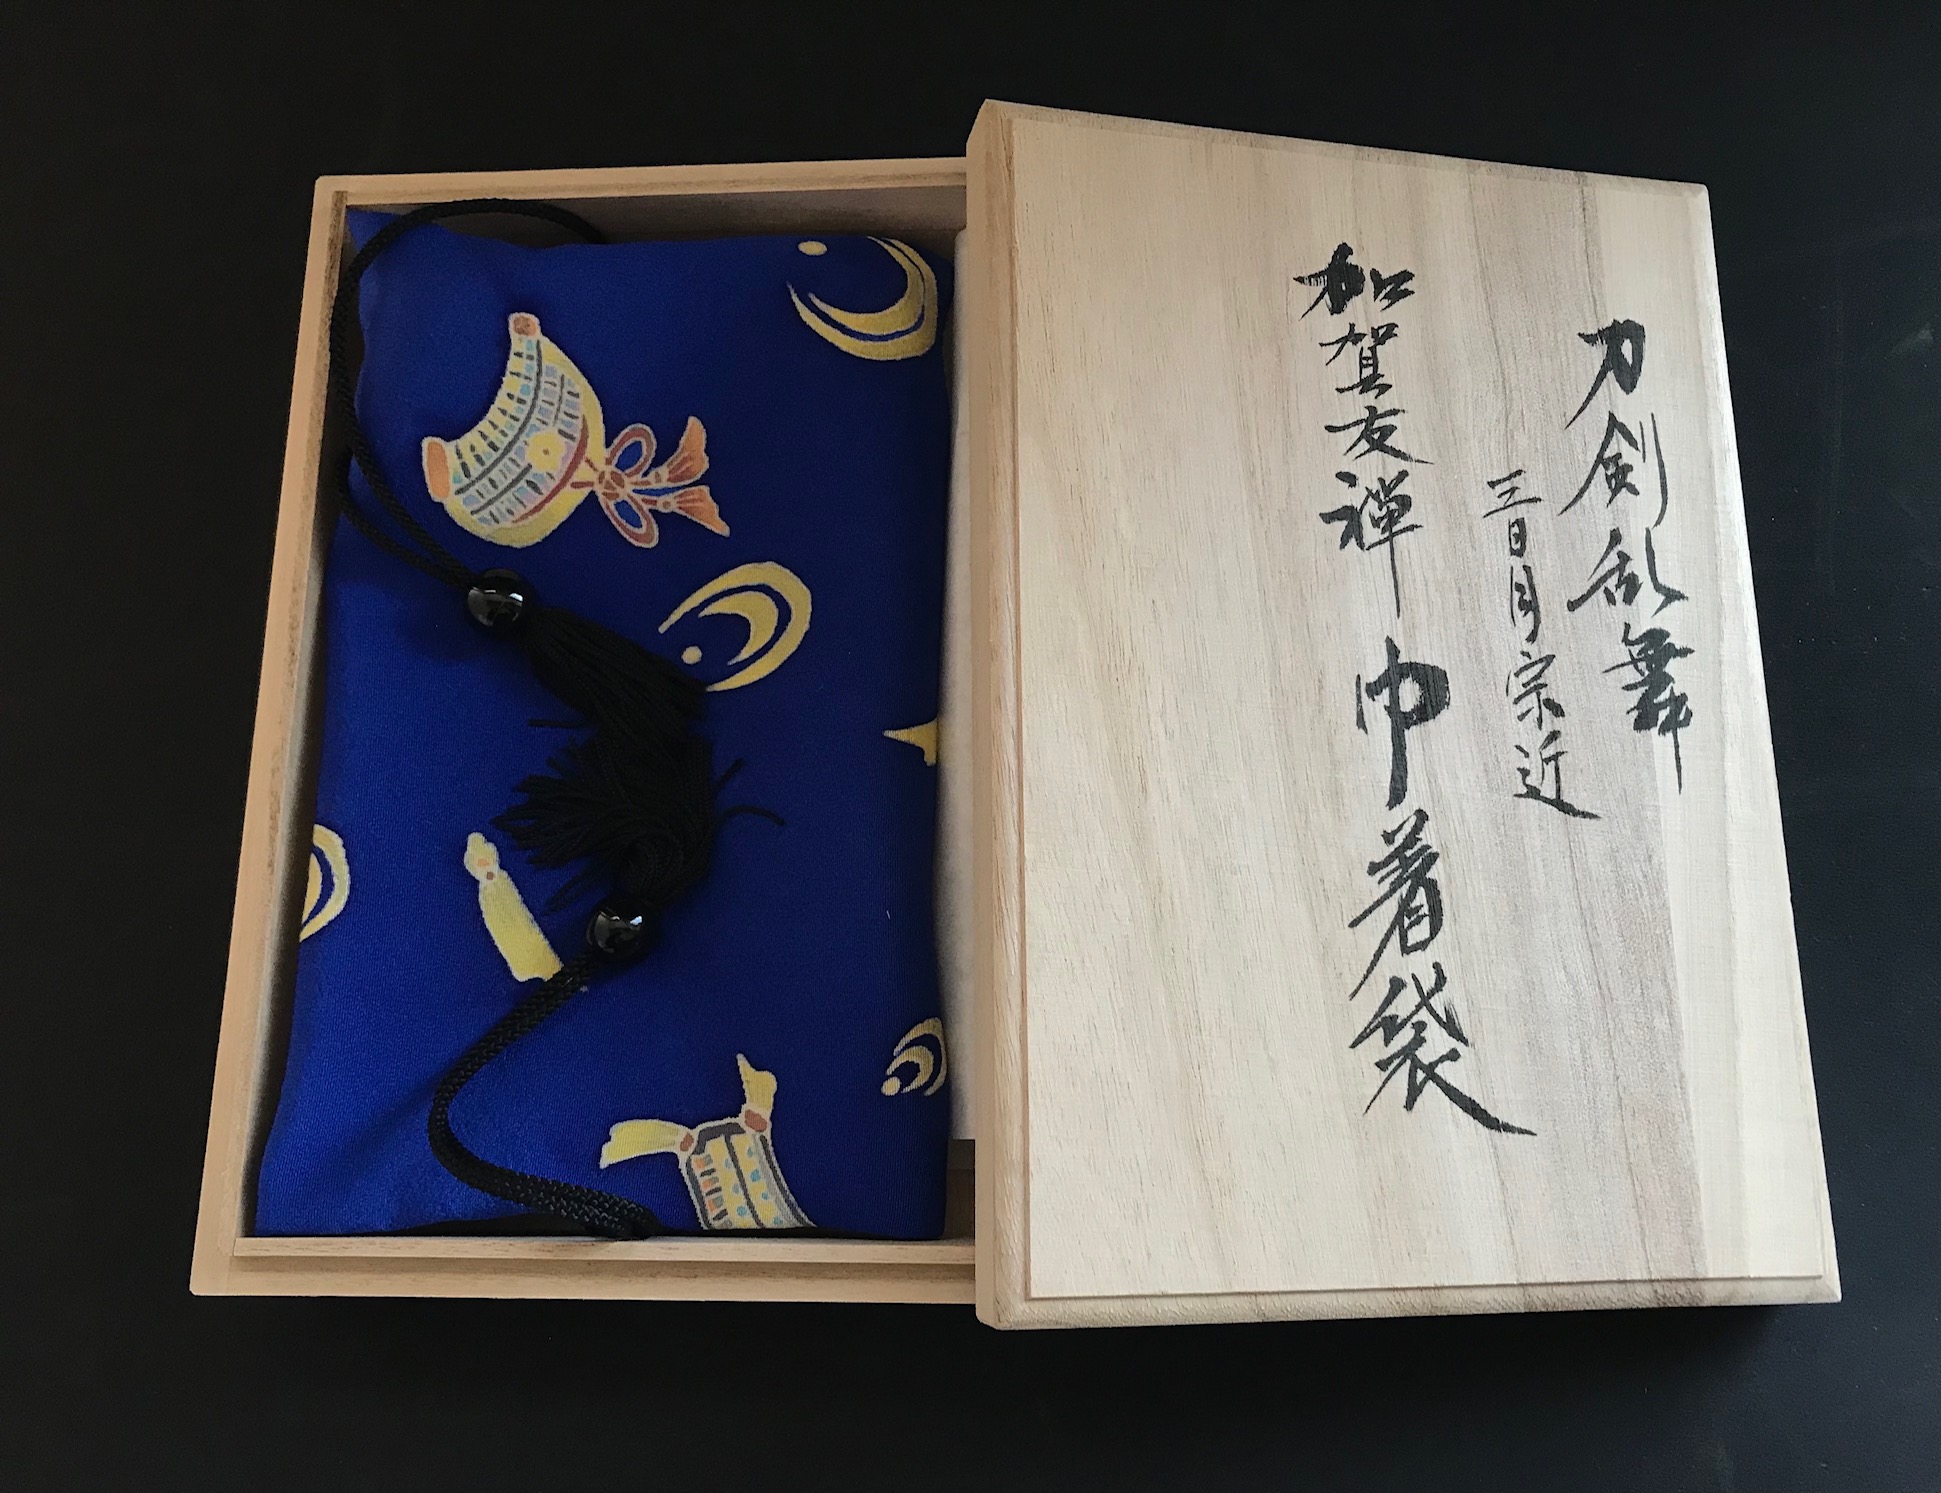 刀剣乱舞
三日月宗近
加賀友禅巾着袋